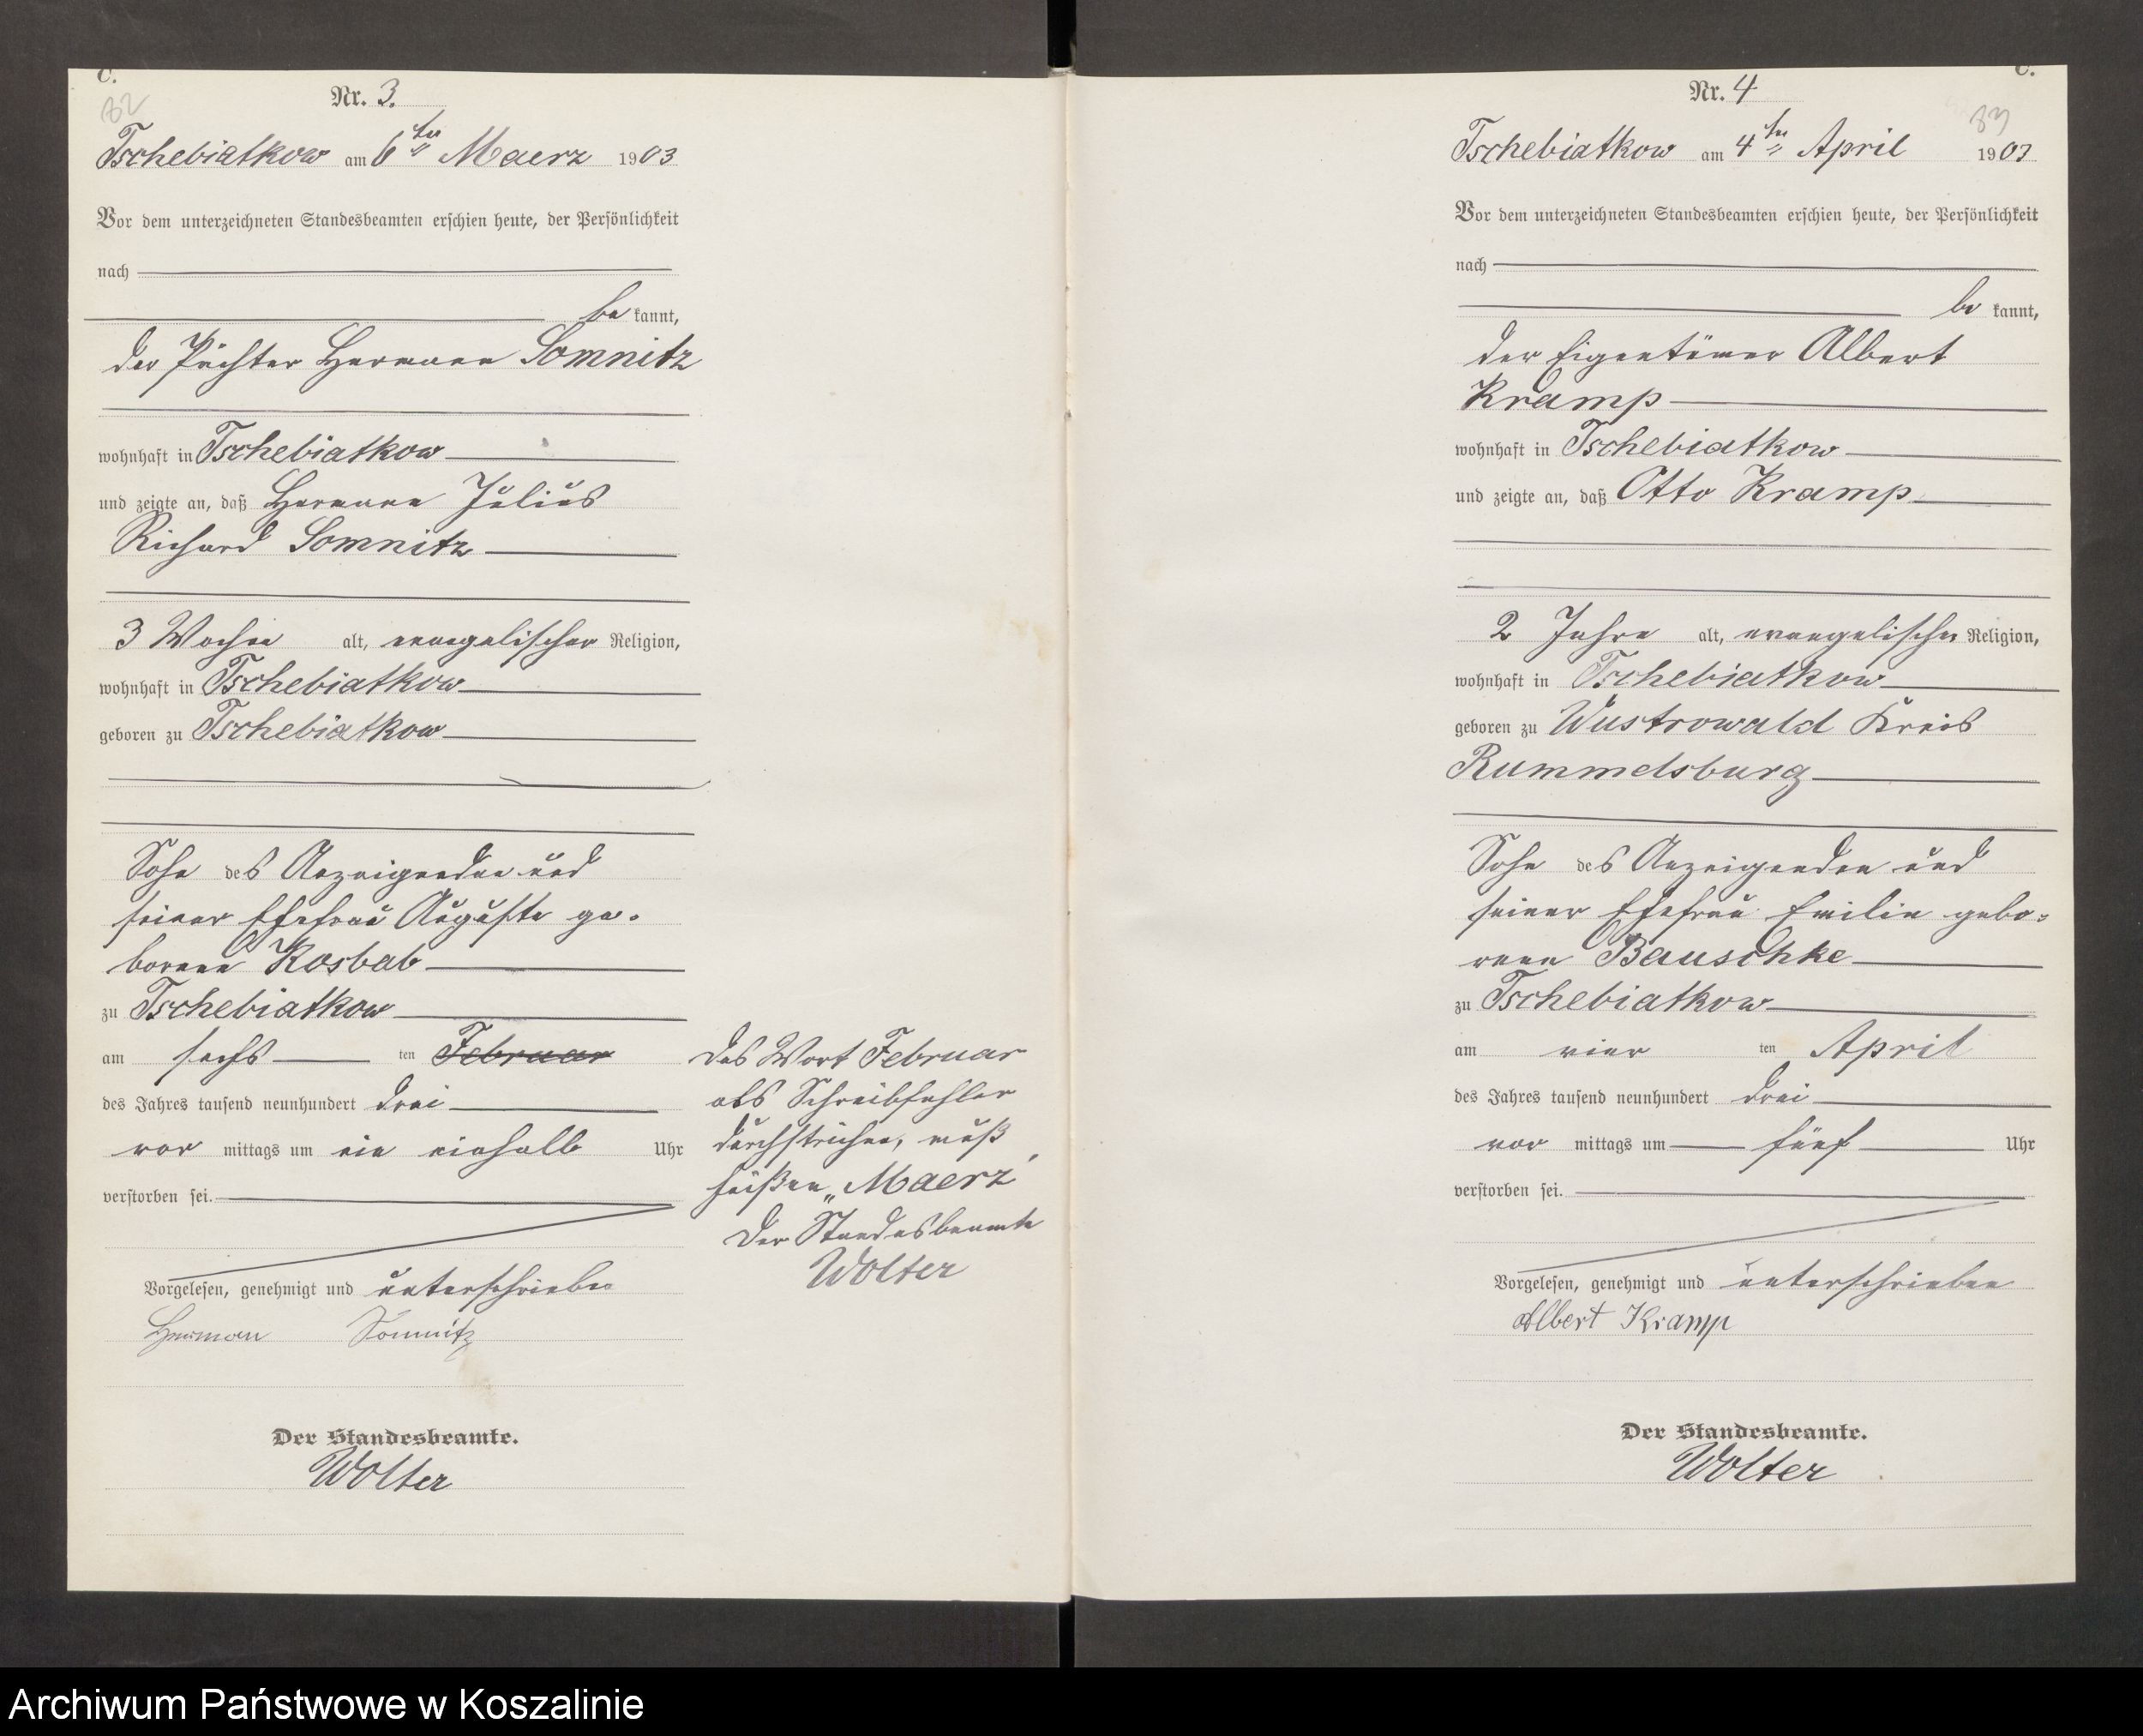 C.
82
Nr. 3.
Tschebiatkow am 6ten Maerz 1903
Vor dem unterzeichneten Standesbeamten erschien heute, der Persönlichkeit
nach
be kannt,
der Pächter Hermann Somnitz
wohnhaft in Tschebiatkow
und zeigte an, daß Hermann Julius
Richard Somnitz
3 Wochen alt, evangelischer Religion,
wohnhaft in Tschebiatkow
geboren zu Tschebiatkow
Sohn des Anzeigenden und
seiner Ehefrau Auguste ge-
borene Kosbab
zu Tschebiatkow
am sechs ten Februar
des Jahres tausend neunhundert drei
vor mittags um ein einhalb Uhr
verstorben sei.
Das Wort Februar
als Schreibfehler
durchstrichen, muß
heißen „Maerz"
Der Standesbeamte
Wolter
Vorgelesen, genehmigt und unterschrieben
Herman Somnitz
Der Standesbeamte.
Wolter
C.
83
Nr. 4
Tschebiatkow am 4ten April 1903
Vor dem unterzeichneten Standesbeamten erschien heute, der Persönlichkeit
nach
be kannt,
der Eigentümer Albert
Kramp
wohnhaft in Tschebiatkow
und zeigte an, daß Otto Kramp
2 Jahre alt, evangelischer Religion,
wohnhaft in Tschebiatkow
geboren zu Wustrowald Kreis
Rummelsburg
Sohn des Anzeigenden und
seiner Ehefrau Emilie gebo-
rene Bauschke
zu Tschebiatkow
am vier ten April
des Jahres tausend neunhundert drei
vor mittags um fünf Uhr
verstorben sei.
Vorgelesen, genehmigt und unterschrieben
Albert Kramp
Der Standesbeamte.
Wolter
Archiwum Państwowe w Koszalinie